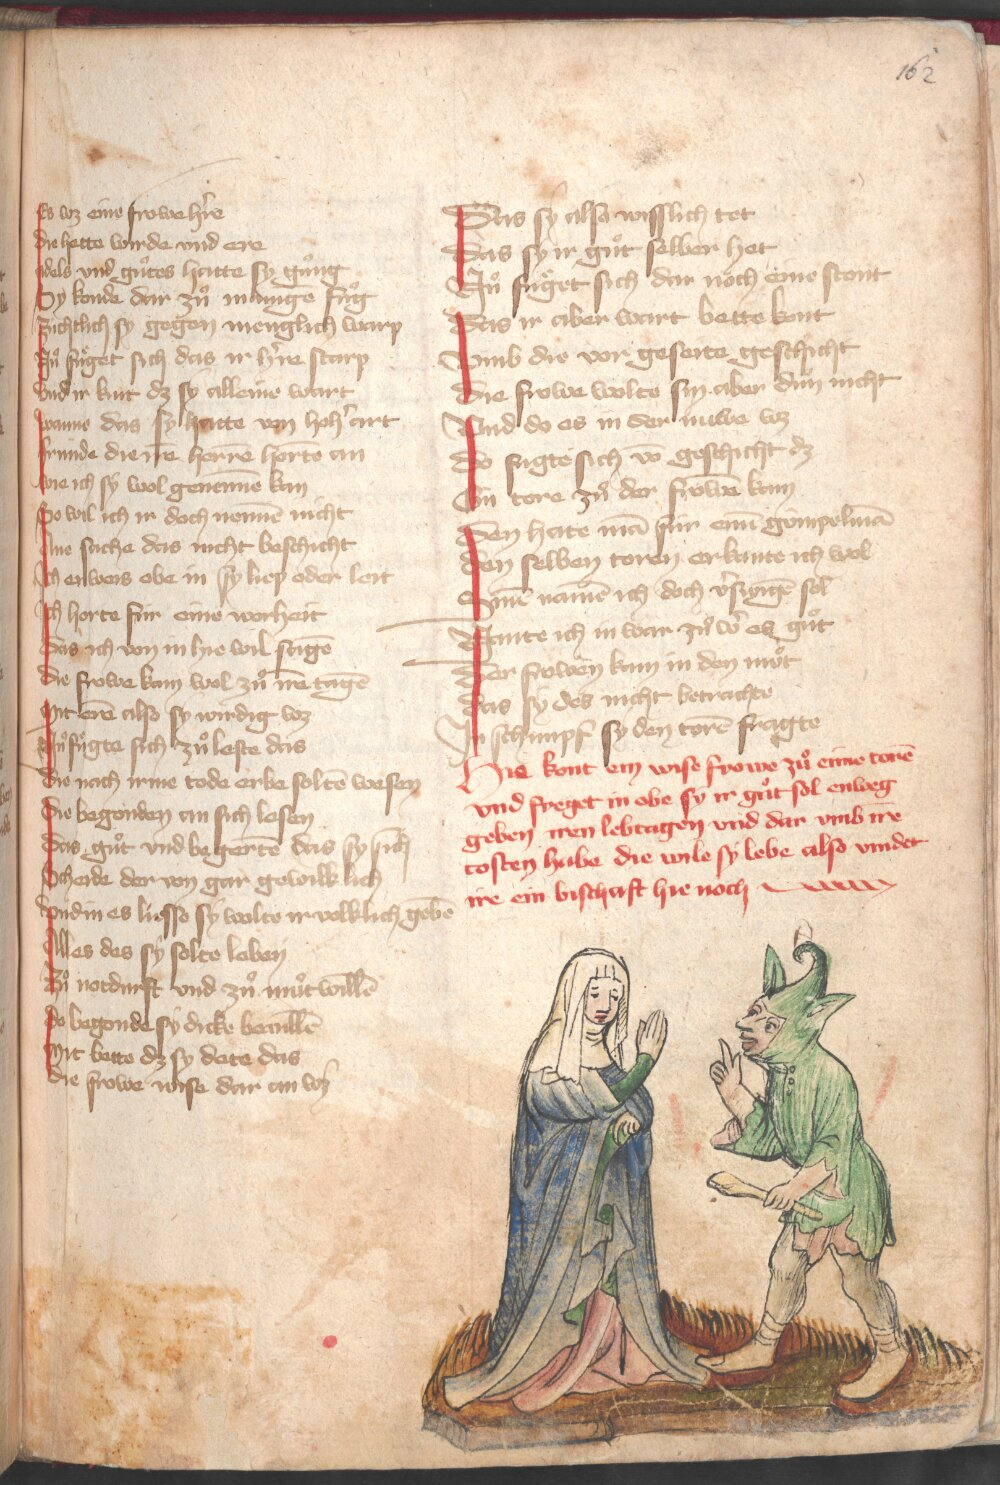 162
Es waz eine frowe h're
die hette wirde vnd ere
adels vnd gůtes hatte sy gůng
Sy konde dar zů mange fůg
Zúchtlich sy gegen menglich warp
Nů fůget sich das ir h're starp
vnd ir kint dz sy alleine wart
wanne das sy hatte von hoh' art
frúnde die ire herre horte an
wie ich sy wol genanne kan
So wil ich ir doch nennē nicht
Ane sache das nicht beschicht
Ich enweis obe in sy liep oder leit
Ich horte fúr eine worheit
das ich von in hie wil sagē
die frowe kam wol zů irē tagē
Mit erē also sy wirdig waz
Nů fůgte sich zů leste das
die nach irme tode erbe soltē wesen
die begonden an sich lesen
das gůt vnd begertē das sy sich
Scheide der von gar gewilklich
vnd in es liesse sy wolte ir volklich gebē
Alles des sy solte leben
Zů notdurft vnd zů můtwillē
do begonde sy dicke bevillē
Mit bette dz sy dete das
die frowe wise dar an waz
Das sy also wisslich tet
das sy ir gůt selber het
Nů fůget sich dar noch eine stont
das ir aber wart bette kont
vmb die vor geseite geschicht
die frowe wolte sin aber dun nicht
Vnd do es in der nuwe waz
do fugte sich vō geschicht dz
Ein tore zů der frowē kam
den hatte mā fúr einē gúmpelmā
den selben toren erkante ich wol
Sinē namē ich doch v'swigē sol
Nante ich in war zů w'e es gůt
Der frowen kam in den můt
das sy des nicht betrachte
In schimpf sy den torē fragte
Hie kont ein wise frowe zů eime torē
vnd froget in obe sy ir gůt sol enweg
geben iren lebtagen vnd dar vmb ire
costen habe die wile sy lebe also vindet
ire ein bischaft hie noch